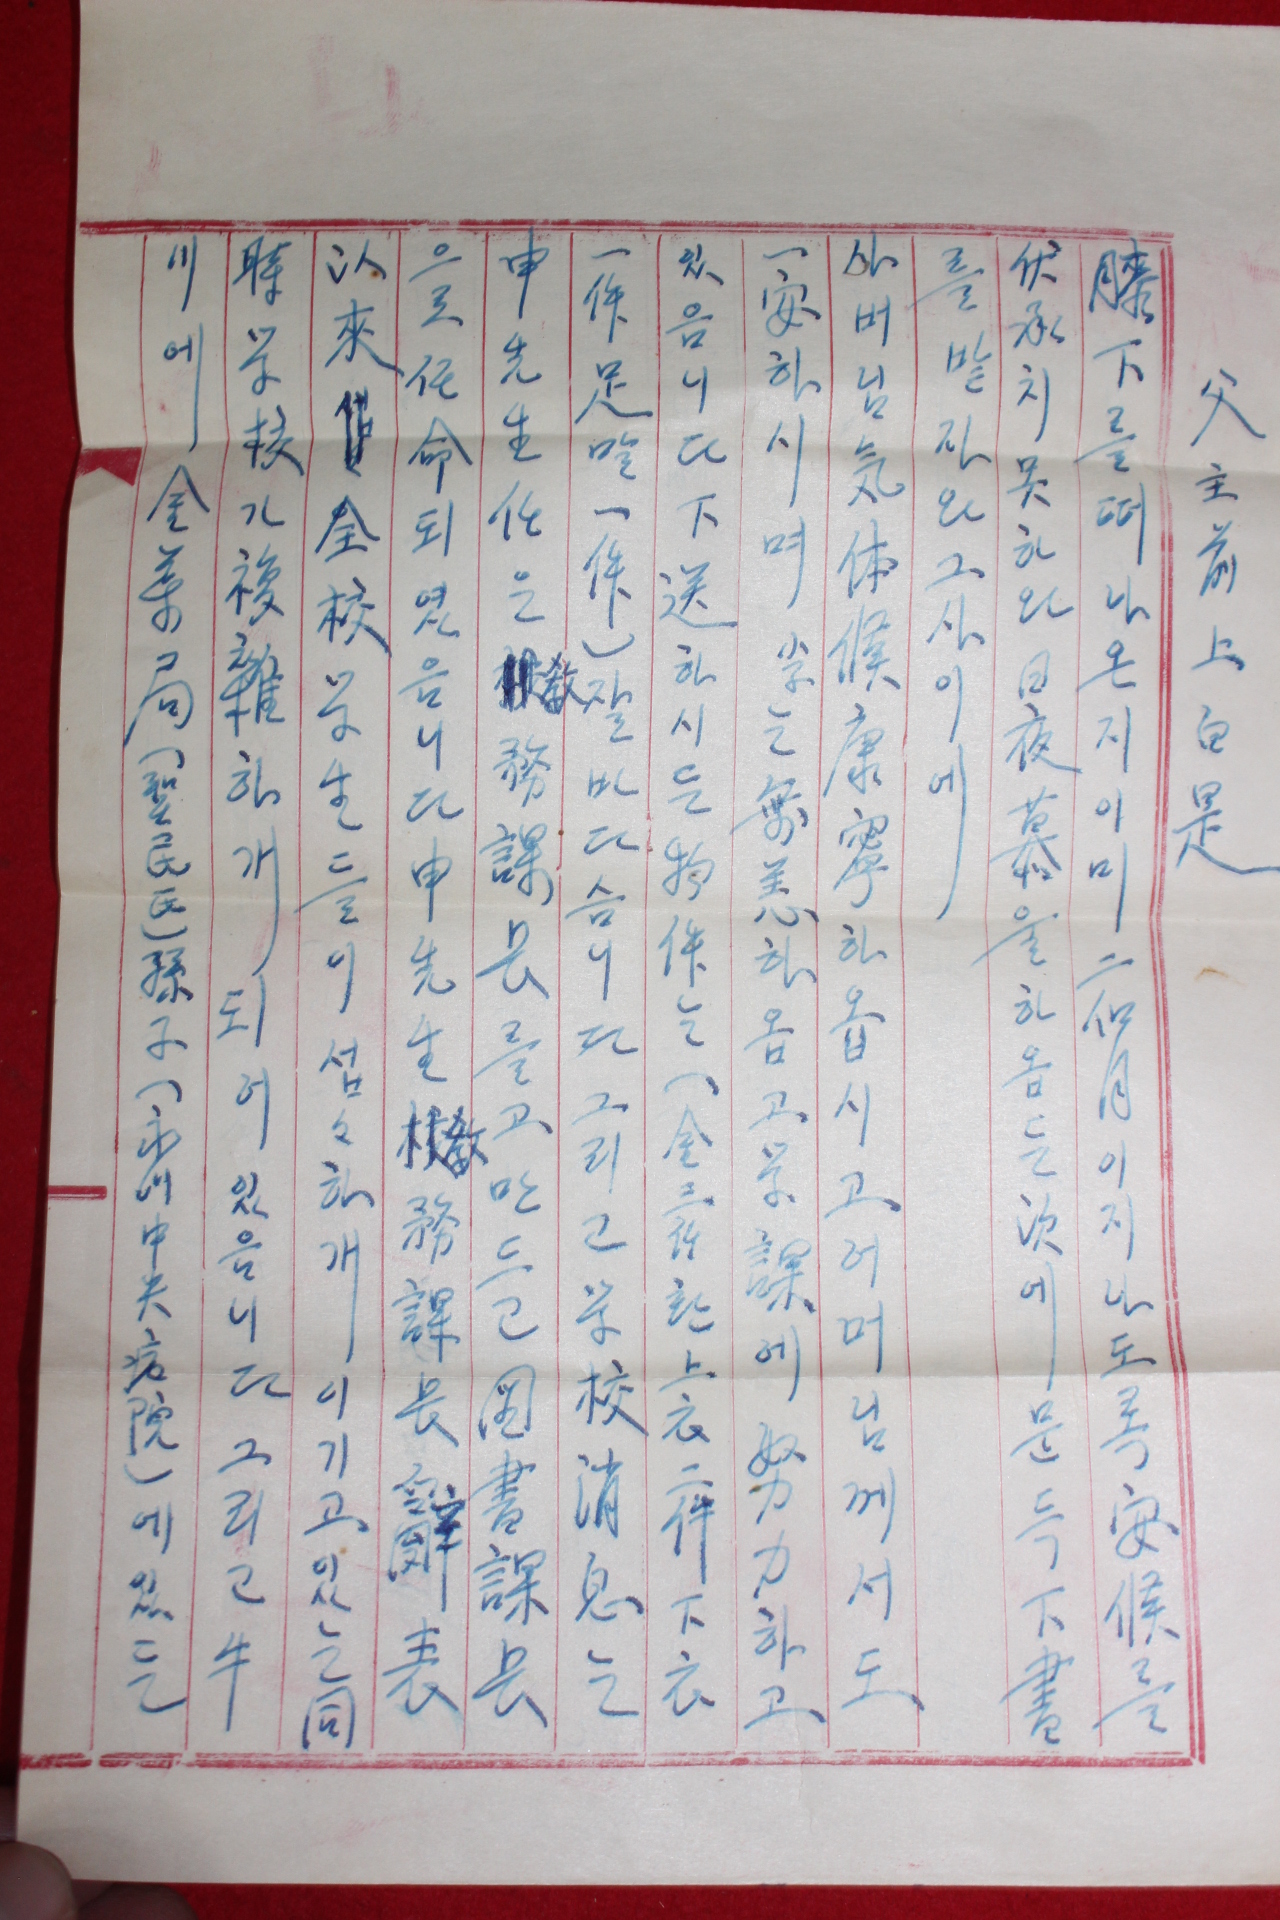 父主前上白是
膝下를떠나온지이미二個月이지나도록安候를
伏承치못하와日夜慕을하옴든次에문득下書
를받자와그사이에
아버님気体候康寧하옵시고어머님께서도
一安하시며 子는無恙하옴고学課에努力하고
있음니다下送하시든物件는(全部한上衣二件下衣
一件足말一件)잘바다슴니다그리고学校消息는
申先生任은教務課長를고만드고図書課長
으로任命되였음니다申先生教務課長辭表
以來全校学生들이섭々하개이기고있는同
時学校가複雜하개되어있음니다그리고牛
川에金薬局(聖民氏)孫子(永川中央病院)에있든